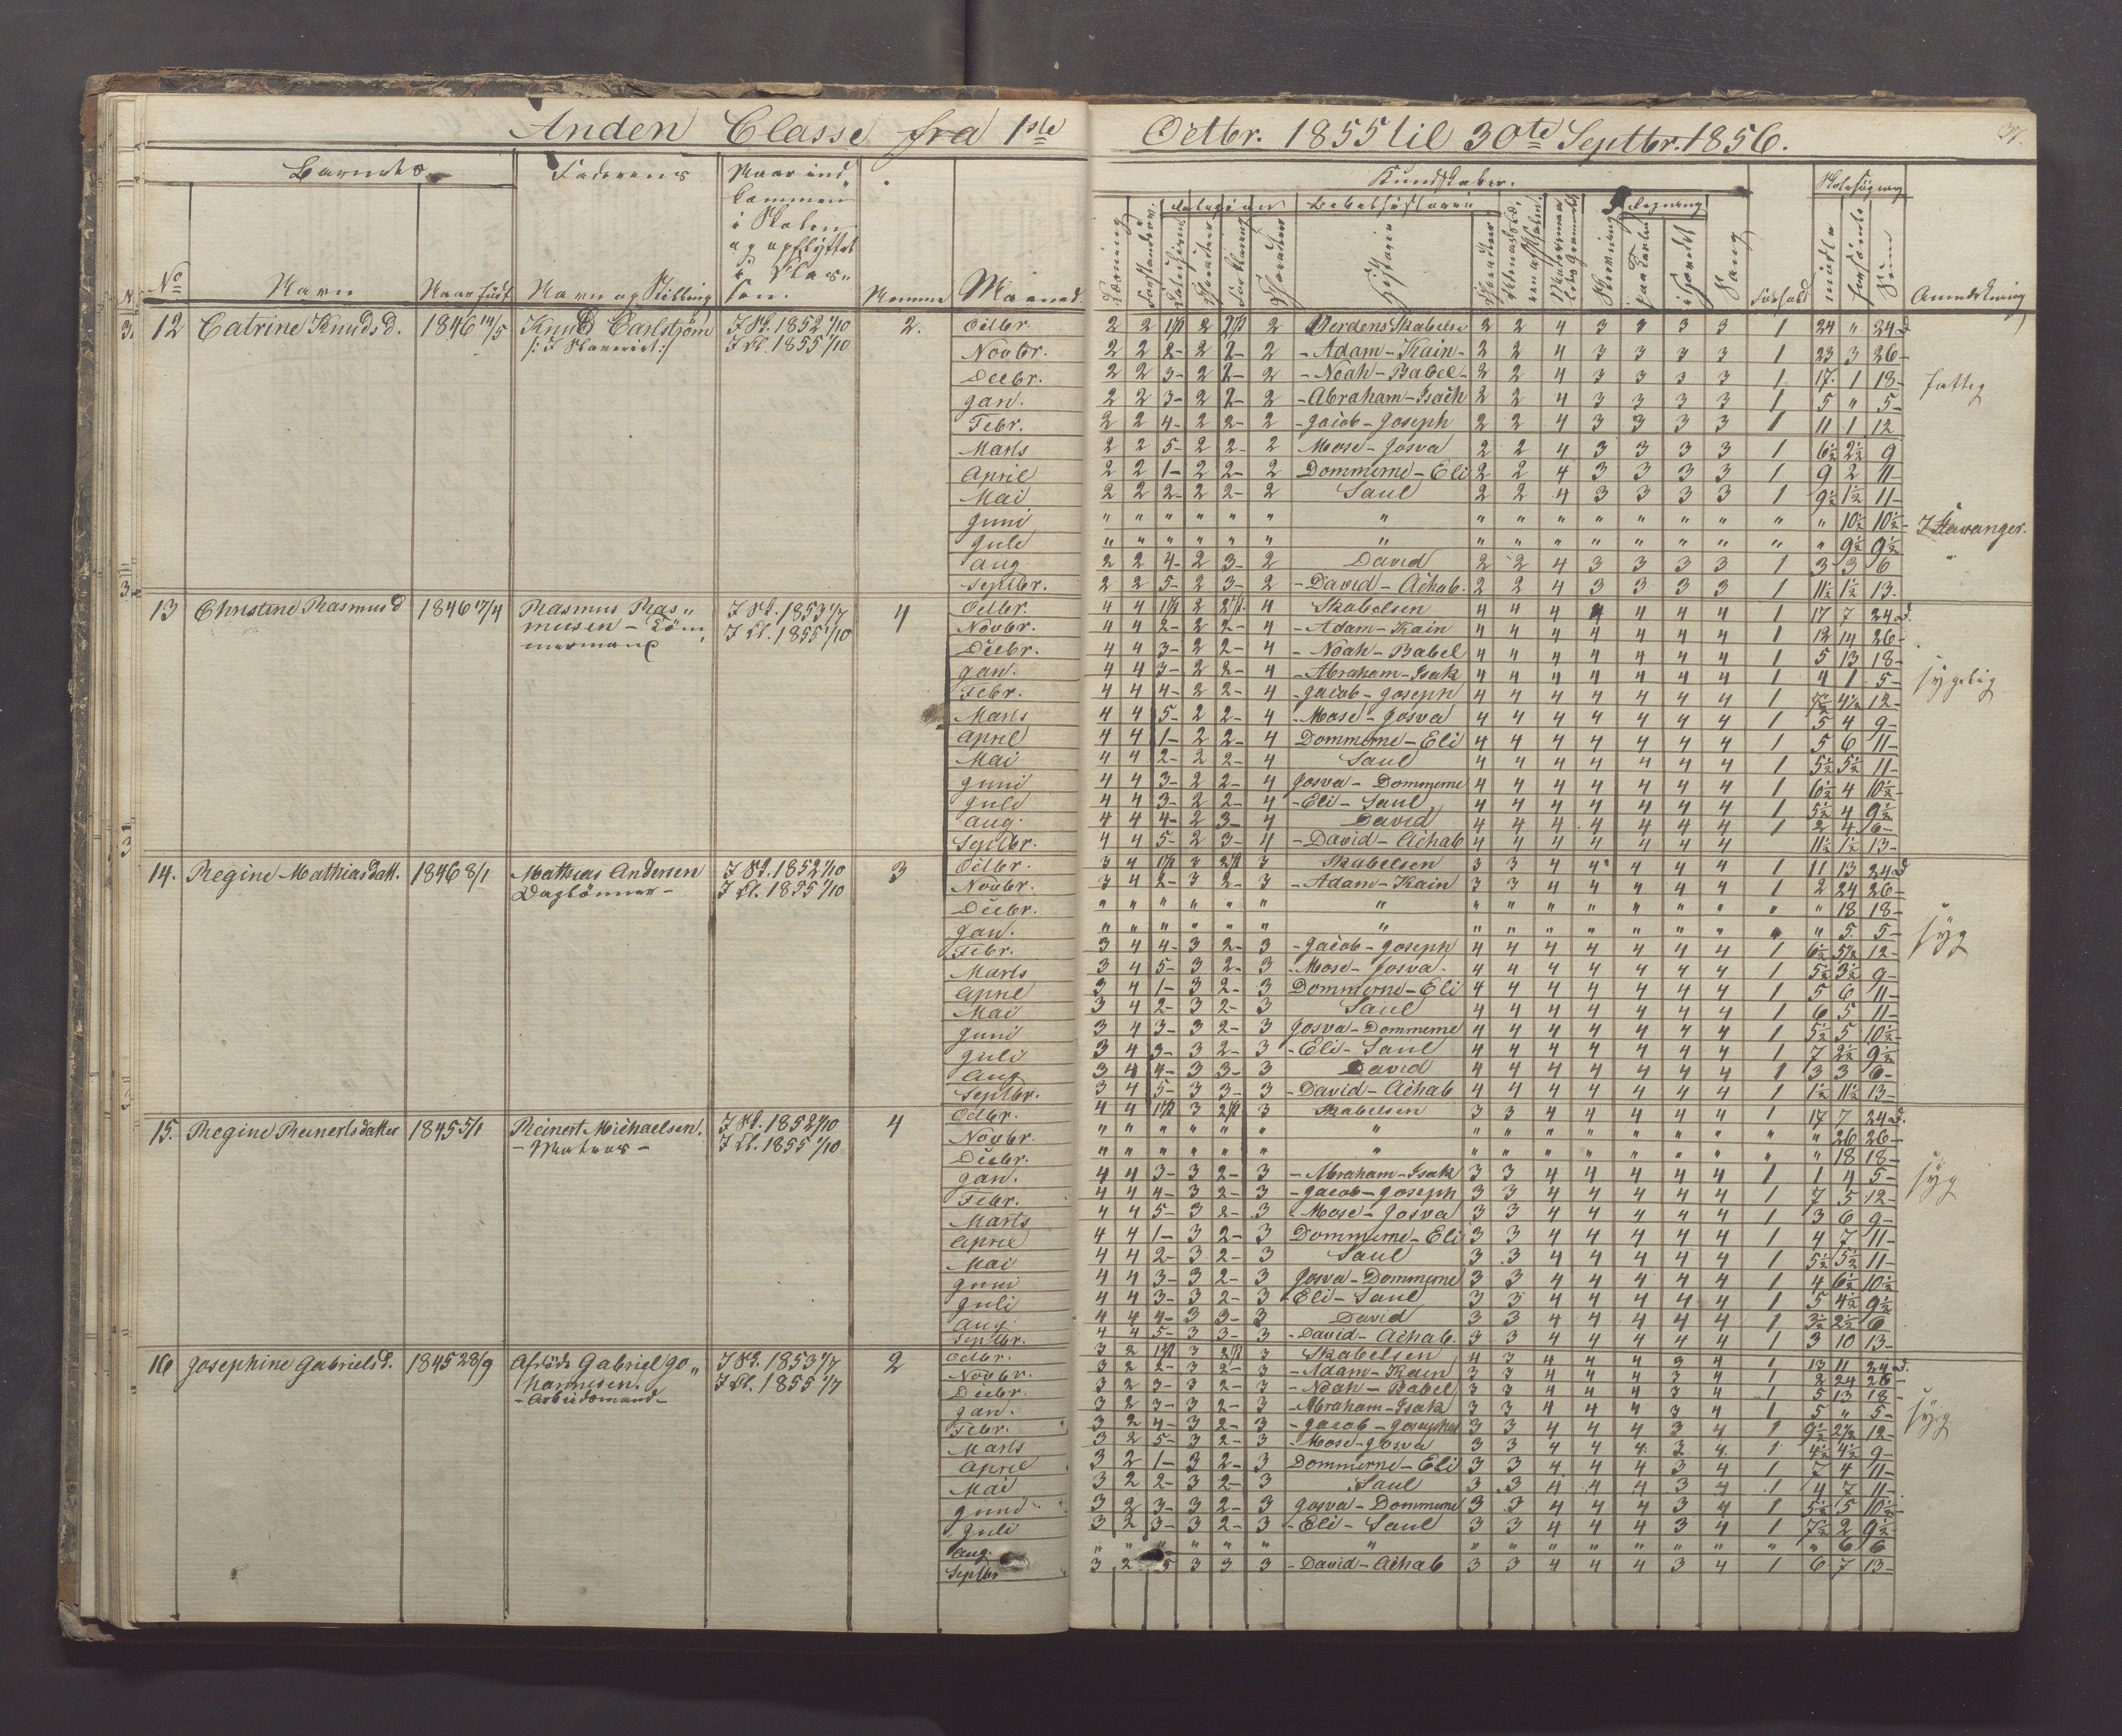 Anden Classe fra 1ste Octbr. 1855 til 30te Septbr. 1856.
37.
Barnets
Faderens
Naar ind
kommen
i Skolen
og opflyttet
i Clas-
sen.
No
Navn
Naar født
Navn og Stilling
Nomme
Maaned.
Kundskaber.
Religion
Bibelhistorie
Regning
Skolesøgning
Læsning
Historie
Skrivning
paa Tavlen
i Hovedet
Sang
Forhold
mødte
forsömte
Sum
Anmærkning
12 Catrine Knudsd. 1846 14/5 Knud Carlström I Sk. 1852 1/10 2. Octbr. 2 2 1 1/2 2 2 1/2 2 Verdens Skabelse 2 2 4 3 3 3 3 1 24 " 24 d
I Cl. 1855 1/10 Novbr. 2 2 2- 2 2- 2 -Adam-Kain- 2 2 4 3 3 3 3 1 23 3 26-
Decbr. 2 2 3- 2 2- 2 -Noah-Babel- 2 2 4 3 3 3 3 1 17. 1 18- fattig
Jan. 2 2 3- 2 2- 2 -Abraham-Isach 2 2 4 3 3 3 3 1 5 " 5-
Febr. 2 2 4- 2 2- 2 -Jacob-Joseph 2 2 4 3 3 3 3 1 11 1 12
Marts 2 2 5- 2 2- 2 Mose-Josva 2 2 4 3 3 3 3 1 6 1/2 2 1/2 9
April 2 2 1- 2 2- 2 Dommerne-Eli 2 2 4 3 3 3 3 1 9 2 11-
Mai 2 2 2- 2 2- 2 Saul 2 2 4 3 3 3 3 1 9 1/2 1 1/2 11-
Juni " " " " " " " " " " " " " " " " 10 1/2 10 1/2- I Stavanger.
Juli " " " " " " " " " " " " " " " " 9 1/2 9 1/2
Aug. 2 2 4- 2 3- 2 David 2 2 4 3 3 3 3 1 3 3 6
Septbr. 2 2 5- 2 3- 2 -David-Achab. 2 2 4 3 3 3 3 1 11 1/2 1 1/2 13.
13 Christine Rasmusd 1846 17/4 Rasmus Ras- I Sk. 1853 1/7 4 Octbr. 4 4 1 1/2 2 2 1/2 4 Skabelsen 4 4 4 4 4 4 4 1 17 7 24 d.
musen - Töm- I Cl. 1855 1/10 Novbr. 4 4 2- 2 2- 4 -Adam-Kain 4 4 4 4 4 4 4 1 12 14 26-
mermand Decbr. 4 4 3- 2 2- 4 -Noah-Babel 4 4 4 4 4 4 4 1 5 13 18-
Jan. 4 4 3- 2 2- 4 -Abraham-Isak 4 4 4 4 4 4 4 1 4 1 5- sygelig
Febr. 4 4 4- 2 2- 4 -Jacob-Joseph 4 4 4 4 4 4 4 1 7 1/2 4 1/2 12-
Marts 4 4 5- 2 2- 4 -Mose-Josva 4 4 4 4 4 4 4 1 5 4 9-
April 4 4 1- 2 2- 4 Dommerne-Eli 4 4 4 4 4 4 4 1 5 6 11-
Mai 4 4 2- 2 2- 4 Saul 4 4 4 4 4 4 4 1 5 1/2 5 1/2 11-
Juni 4 4 3- 2 2- 4 Josva-Dommerne 4 4 4 4 4 4 4 1 6 1/2 4 10 1/2-
Juli 4 4 3- 2 2- 4 -Eli-Saul 4 4 4 4 4 4 4 1 5 1/2 4 9 1/2
Aug. 4 4 4- 2 3- 4 David 4 4 4 4 4 4 4 1 2 4 6-
Septbr. 4 4 5- 2 3- 4 -David-Achab 4 4 4 4 4 4 4 11 1/2 1 1/2 13-
14. Regine Mathiasdatt. 1846 8/1 Mathias Andersen I Sk. 1852 1/10 3 Octbr. 3 4 1 1/2 3 2 1/2 3 Skabelsen 3 3 4 4 4 4 4 1 11 13 24 d
Daglönner- I Cl. 1855 1/10 Novbr. 3 4 2- 3 2- 3 -Adam-Kain 3 3 4 4 4 4 4 1 2 24 26-
Decbr. " " " " " " " " " " " " " " " " 18 18-
Jan. " " " " " " " " " " " " " " " " 5. 5- syg
Febr. 3 4 4- 3 2- 3 -Jacob-Joseph 4 4 4 4 4 4 4 1 6 1/2 5 1/2 12-
Marts 3 4 5- 3 2- 3 -Mose-Josva- 4 4 4 4 4 4 4 1 5 1/2 3 1/2 9-
April 3 4 1- 3 2- 3 Dommerne-Eli 4 4 4 4 4 4 4 1 5 6 11-
Mai 3 4 2- 3 2- 3 Saul 4 4 4 4 4 4 4 1 6 5 11-
Juni 3 4 3- 3 2- 3 Josva-Dommerne 4 4 4 4 4 4 4 1 5 1/2 5 10 1/2
Juli 3 4 3- 3 2- 3 -Eli-Saul 4 4 4 4 4 4 4 1 7 2 1/2 9 1/2
Aug 3 4 4- 3 3- 3 David 4 4 4 4 4 4 4 1 3 3 6-
Septbr. 3 4 5- 3 3- 3 -David-Achab 4 4 4 4 4 4 4 1 1 1/2 11 1/2 13-
15. Regine Reinertsdatter 1845 5/1 Reinert Michaelsen. I Sk. 1852 1/10 4 Octbr. 4 4 1 1/2 3 2 1/2 3 Skabelsen 3 3 4 4 4 4 4 1 17 7 24 d.
-Matros- I Cl. 1855 1/10 Novbr. " " " " " " " " " " " " " " " " 26 26-
Decbr. " " " " " " " " " " " " " " " " 18 18-
Jan. 4 4 3- 3 2- 3 -Abraham-Isak 3 3 4 4 4 4 4 1 1 4 5- syg
Febr. 4 4 4- 3 2- 3 -Jacob-Joseph 3 3 4 4 4 4 4 1 7 5 12-
Marts 4 4 5- 3 2- 3 -Mose-Josva 3 3 4 4 4 4 4 1 3 6 9-
April 4 4 1- 3 2- 3 Dommerne-Eli 3 3 4 4 4 4 4 1 4 7 11-
Mai 4 4 2- 3 2- 3 Saul 3 3 4 4 4 4 4 1 5 1/2 5 1/2 11-
Juni 4 4 3- 3 2- 3 Josva-Dommerne 3 3 4 4 4 4 4 1 4 6 1/2 10 1/2
Juli 4 4 3- 3 2- 3 -Eli-Saul 3 3 4 4 4 4 4 1 5 4 1/2 9 1/2
Aug. 4 4 4- 3 3- 3 David 3 3 4 4 4 4 4 1 3 1/2 2 1/2 6
Septbr. 4 4 5- 3 3- 3 -David-Achab. 3 3 4 4 4 4 4 1 3 10 13-
16 Josephine Gabrielsd. 1845 28/9 Afdöde Gabriel Jo- I Sk. 1853 1/7 2 Octbr. 3 2 1 1/2 3 2 1/2 3 Skabelsen 4 3 4 4 4 3 4 1 13 11 24 d.
hannesen. I Cl. 1855 1/7 Novbr. 3 2 2- 3 2- 3 -Adam-Kain 3 3 4 4 4 3 4 1 2 24 26-
-Arbeidsmand- Decbr 3 2 3- 3 2- 3 -Noah-Babel 3 3 4 4 4 3 4 1 5 13 18-
Jan. 3 2 3- 3 2- 3 -Abraham-Isak 3 3 4 4 4 3 4 1 5 " 5- syg
Febr. 3 2 4- 3 2- 3 -Jacob-Joseph 3 3 4 4 4 3 4 1 9 1/2 2 1/2 12-
Marts 3 2 5- 3 2- 3 -Mose-Josva 3 3 4 4 4 3 4 1 4 1/2 4 1/2 9-
April 3 2 1- 3 2- 3 Dommerne-Eli 3 3 4 4 4 3 4 1 7 4 11-
Mai 3 2 2- 3 2- 3 Saul 3 3 4 4 4 3 4 1 4 7 11-
Juni 3 2 3- 3 2- 3 Josva-Dommerne 3 3 4 4 4 3 4 1 5 1/2 5 10 1/2-
Juli 3 2 3- 3 2- 3 -Eli-Saul 3 3 4 4 4 3 4 1 7 1/2 2 9 1/2-
Aug. " " " " " " " " " " " " " " " 6 6
Septbr 3 2 5 3 3 3 -David-Achab 3 3 4 4 4 3 4 1 6 7 13-